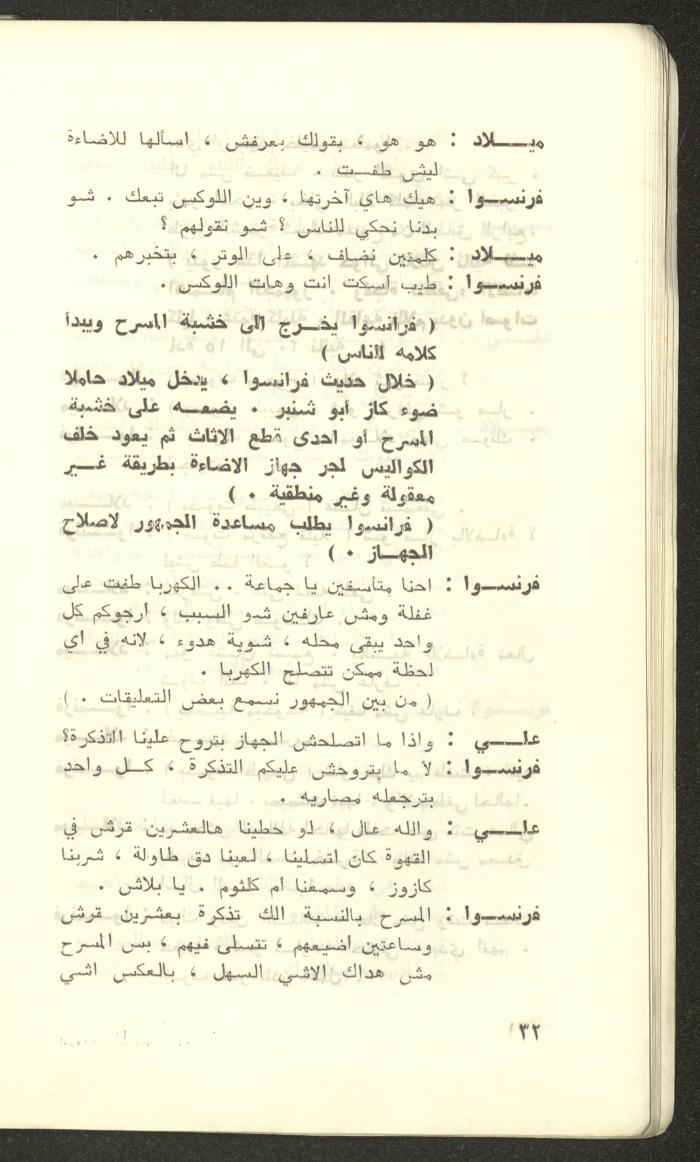 ميـــلاد : هو هو ، بقولك بعرفش ، اسألها للاضاءة
ليش طفــت .
فرنســوا : هيك هاي آخرتها ، وين اللوكس تبعك . شو
بدنا نحكي للناس ؟ شو نقولهم ؟
ميـــلاد : كلمتين نضاف ، على الوتر ، بتخبرهم .
فرنســوا : طيب أسكت انت وهات اللوكس .
( فرانسوا يخــرج الى خشبة المسرح ويبدأ
كلامه للناس )
( خلال حديث فرانسوا ، يدخل ميلاد حاملا
ضوء كاز أبو شنبر . يضعــه على خشبة
المسرح أو احدى قطع الاثاث ثم يعود خلف
الكواليس لجر جهاز الاضاءة بطريقة غــير
معقولة وغير منطقية . )
( فرانسوا يطلب مساعدة الجمهور لاصلاح
الجهــاز . )
فرنســوا : احنا متأسفين يا جماعة .. الكهربا طفت على
غفلة ومش عارفين شو السبب ، أرجوكم كل
واحد يبقى محله ، شوية هدوء ، لانه في اي
لحظة ممكن تتصلح الكهربا .
( من بين الجمهور نسمع بعض التعليقات . )
علـــي : واذا ما اتصلحش الجهاز بتروح علينا التذكرة؟
فرنســوا : لا ما بتروحش عليكم التذكرة ، كــل واحد
بترجعله مصاريه .
علـــي : والله عال ، لو حطينا هالعشرين قرش في
القهوة كان اتسلينا ، لعبنا دق طاولة ، شربنا
كازوز ، وسمعنا أم كلثوم . يا بلاش .
فرنســوا : المسرح بالنسبة الك تذكرة بعشرين قرش
وساعتين اضيعهم ، تتسلى فيهم ، بس المسرح
مش هداك الاشي السهل ، بالعكس اشي
٣٢